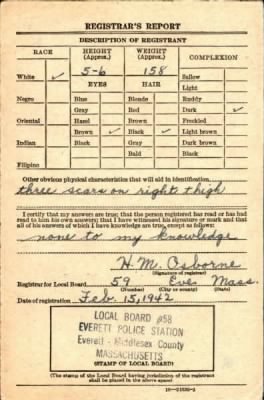 REGISTRAR'S REPORT
DESCRIPTION OF REGISTRANT
RACE HEIGHT (Approx.) WEIGHT (Approx.) COMPLEXION
White ✓ 5-6 158 Sallow
EYES HAIR Light
Negro Blue Blonde Ruddy
Gray Red Dark ✓
Oriental Hazel Brown Freckled
Brown ✓ Black ✓ Light brown
Indian Black Gray Dark brown
Bald Black
Filipino
Other obvious physical characteristics that will aid in identification
three scars on right thigh
I certify that my answers are true; that the person registered has read or has had
read to him his own answers; that I have witnessed his signature or mark and that
all of his answers of which I have knowledge are true, except as follows:
none to my knowledge
H. M. Osborne
(Signature of registrar)
Registrar for Local Board 59 Eve. Mass.
(Number) (City or county) (State)
Date of registration Feb. 15, 1942
LOCAL BOARD #58
EVERETT POLICE STATION
Everett - Middlesex County
MASSACHUSETTS
(STAMP OF LOCAL BOARD)
(The stamp of the Local Board having jurisdiction of the registrant
shall be placed in the above space)